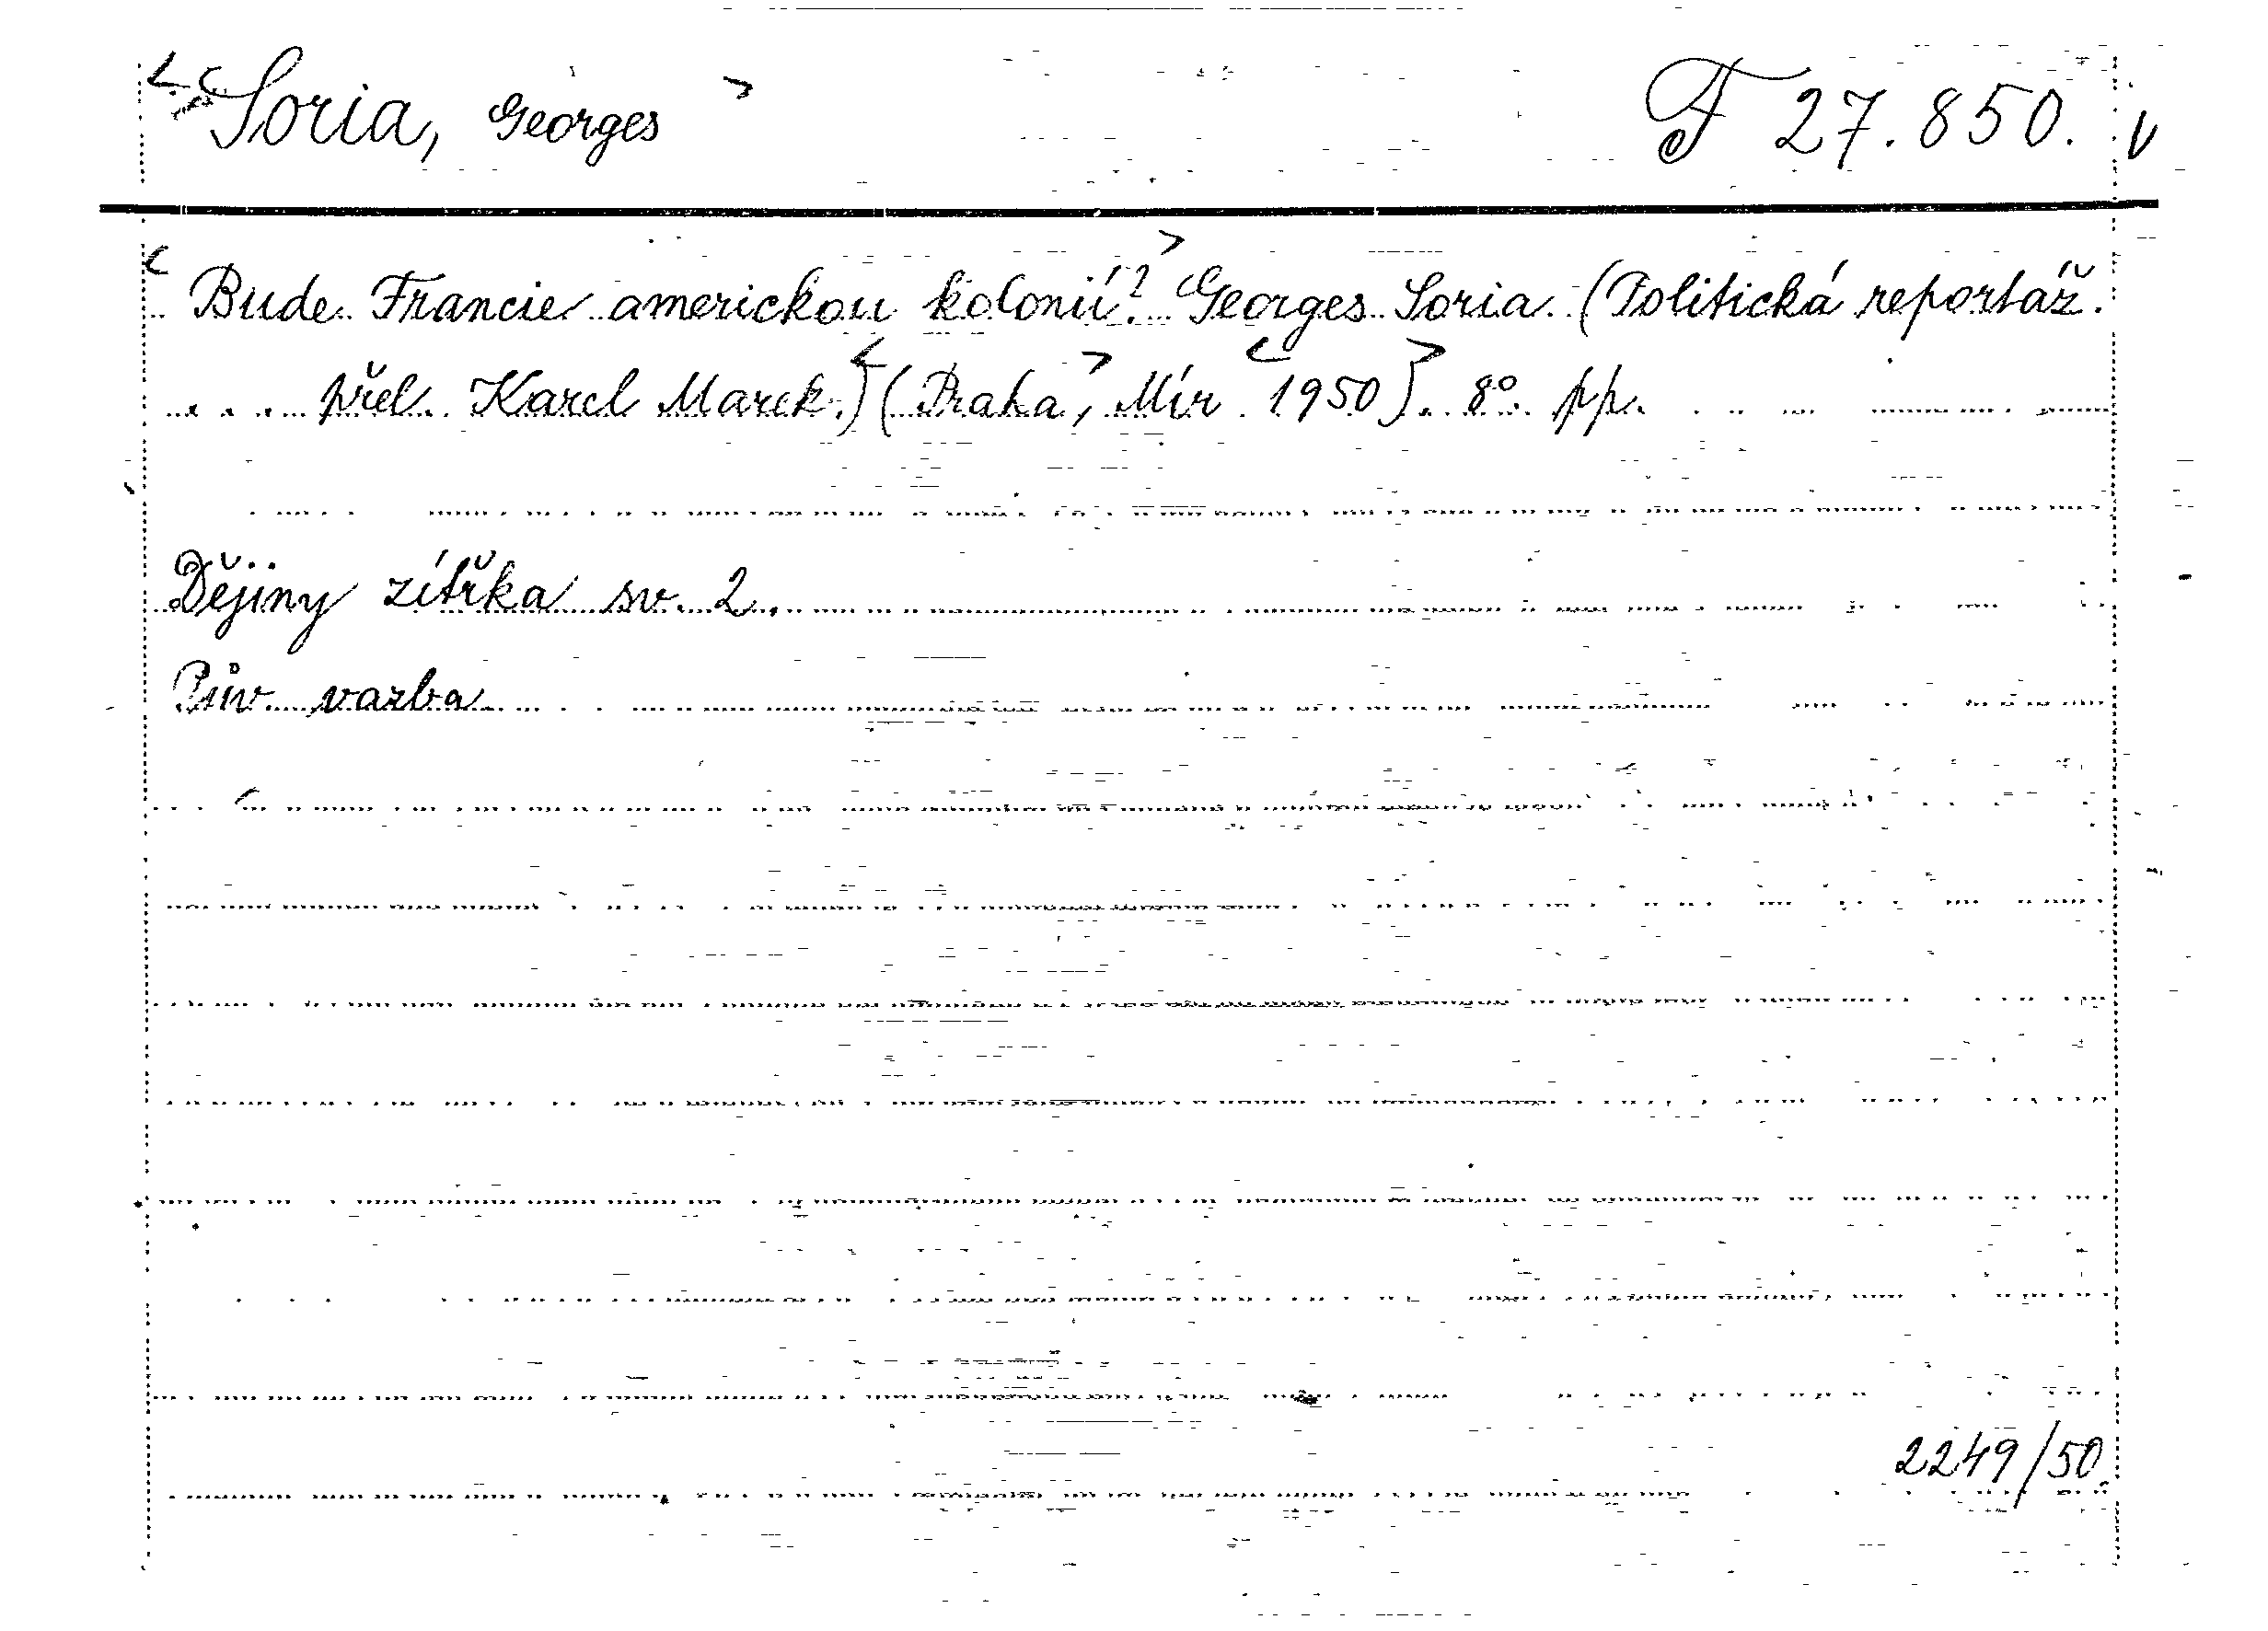 Soria, Georges F 27.850. v
Bude Francie americkou kolonií? Georges Soria. (Politická reportáž.
přel. Karel Marek.) (Praha, Mír 1950). 8° pp.
Dějiny zítřka sv. 2.
Pův. vazba
2249/50.